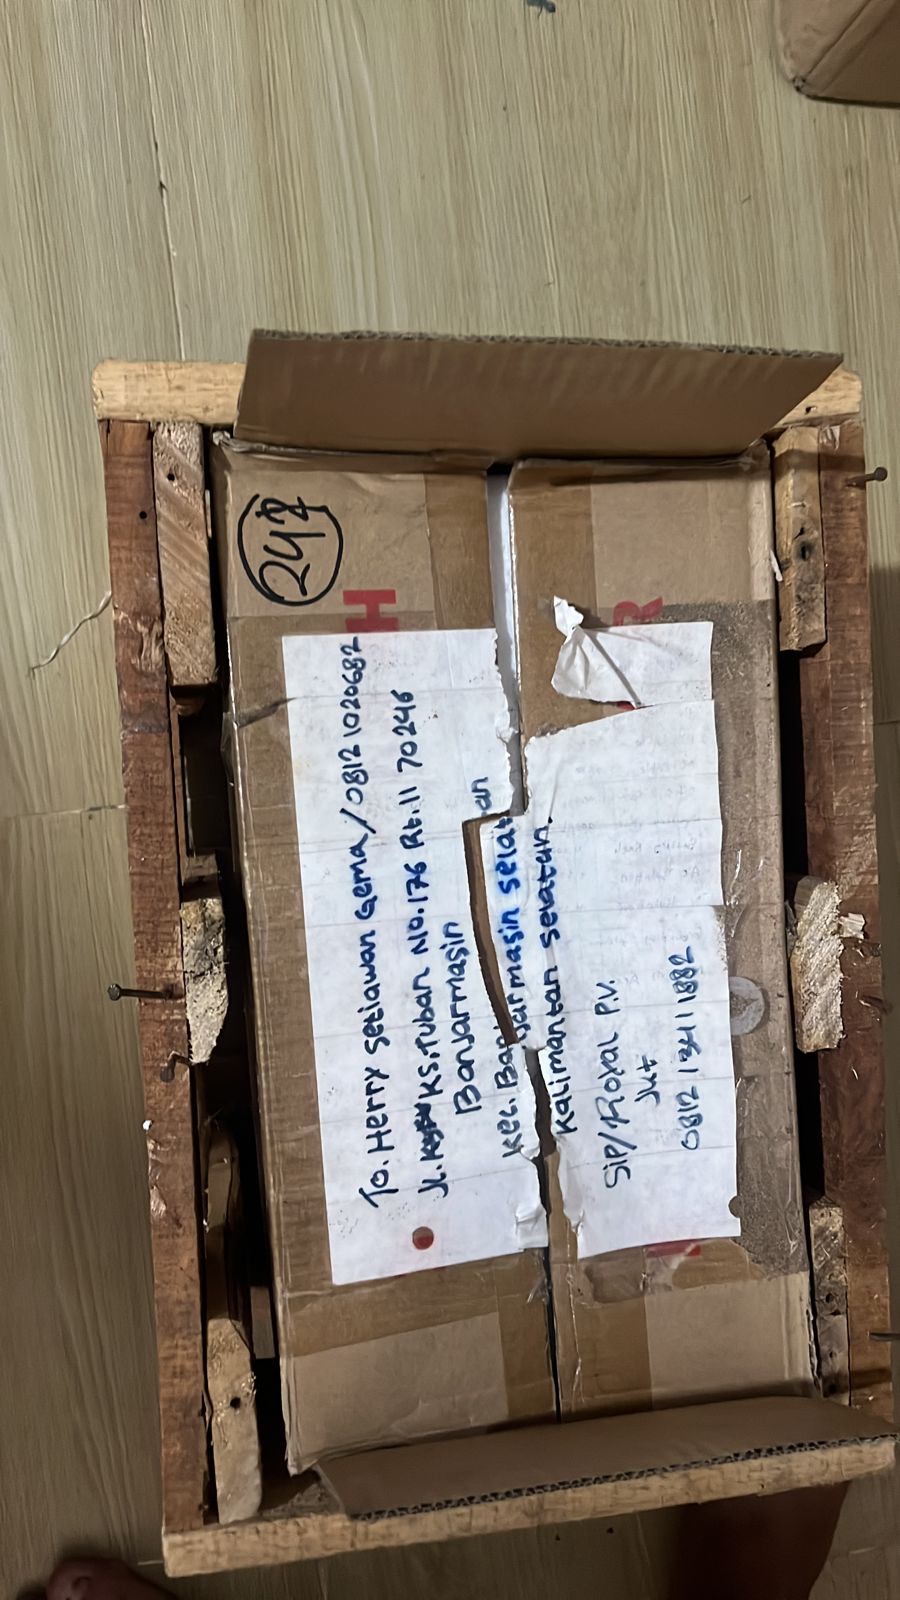 To. Herry Setiawan Gema/08121020682
Jl. KS. Tuban No. 176 Rt. 11 70246
Banjarmasin
Kec. Banjarmasin selatan
Kalimantan selatan.
Sip/Royal P.V.
Jkt
0812 1341 1882
H
R